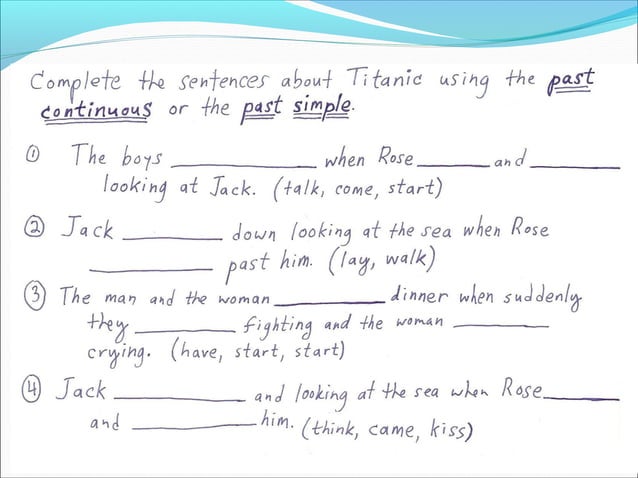 Complete the sentences about Titanic using the past
continuous or the past simple.
① The boys ____________ when Rose ______ and ________
looking at Jack. (talk, come, start)
② Jack _________ down looking at the sea when Rose
___________ past him. (lay, walk)
③ The man and the woman __________ dinner when suddenly
they _________ fighting and the woman ________
crying. (have, start, start)
④ Jack ___________ and looking at the sea when Rose ______
and __________ him. (think, came, kiss)